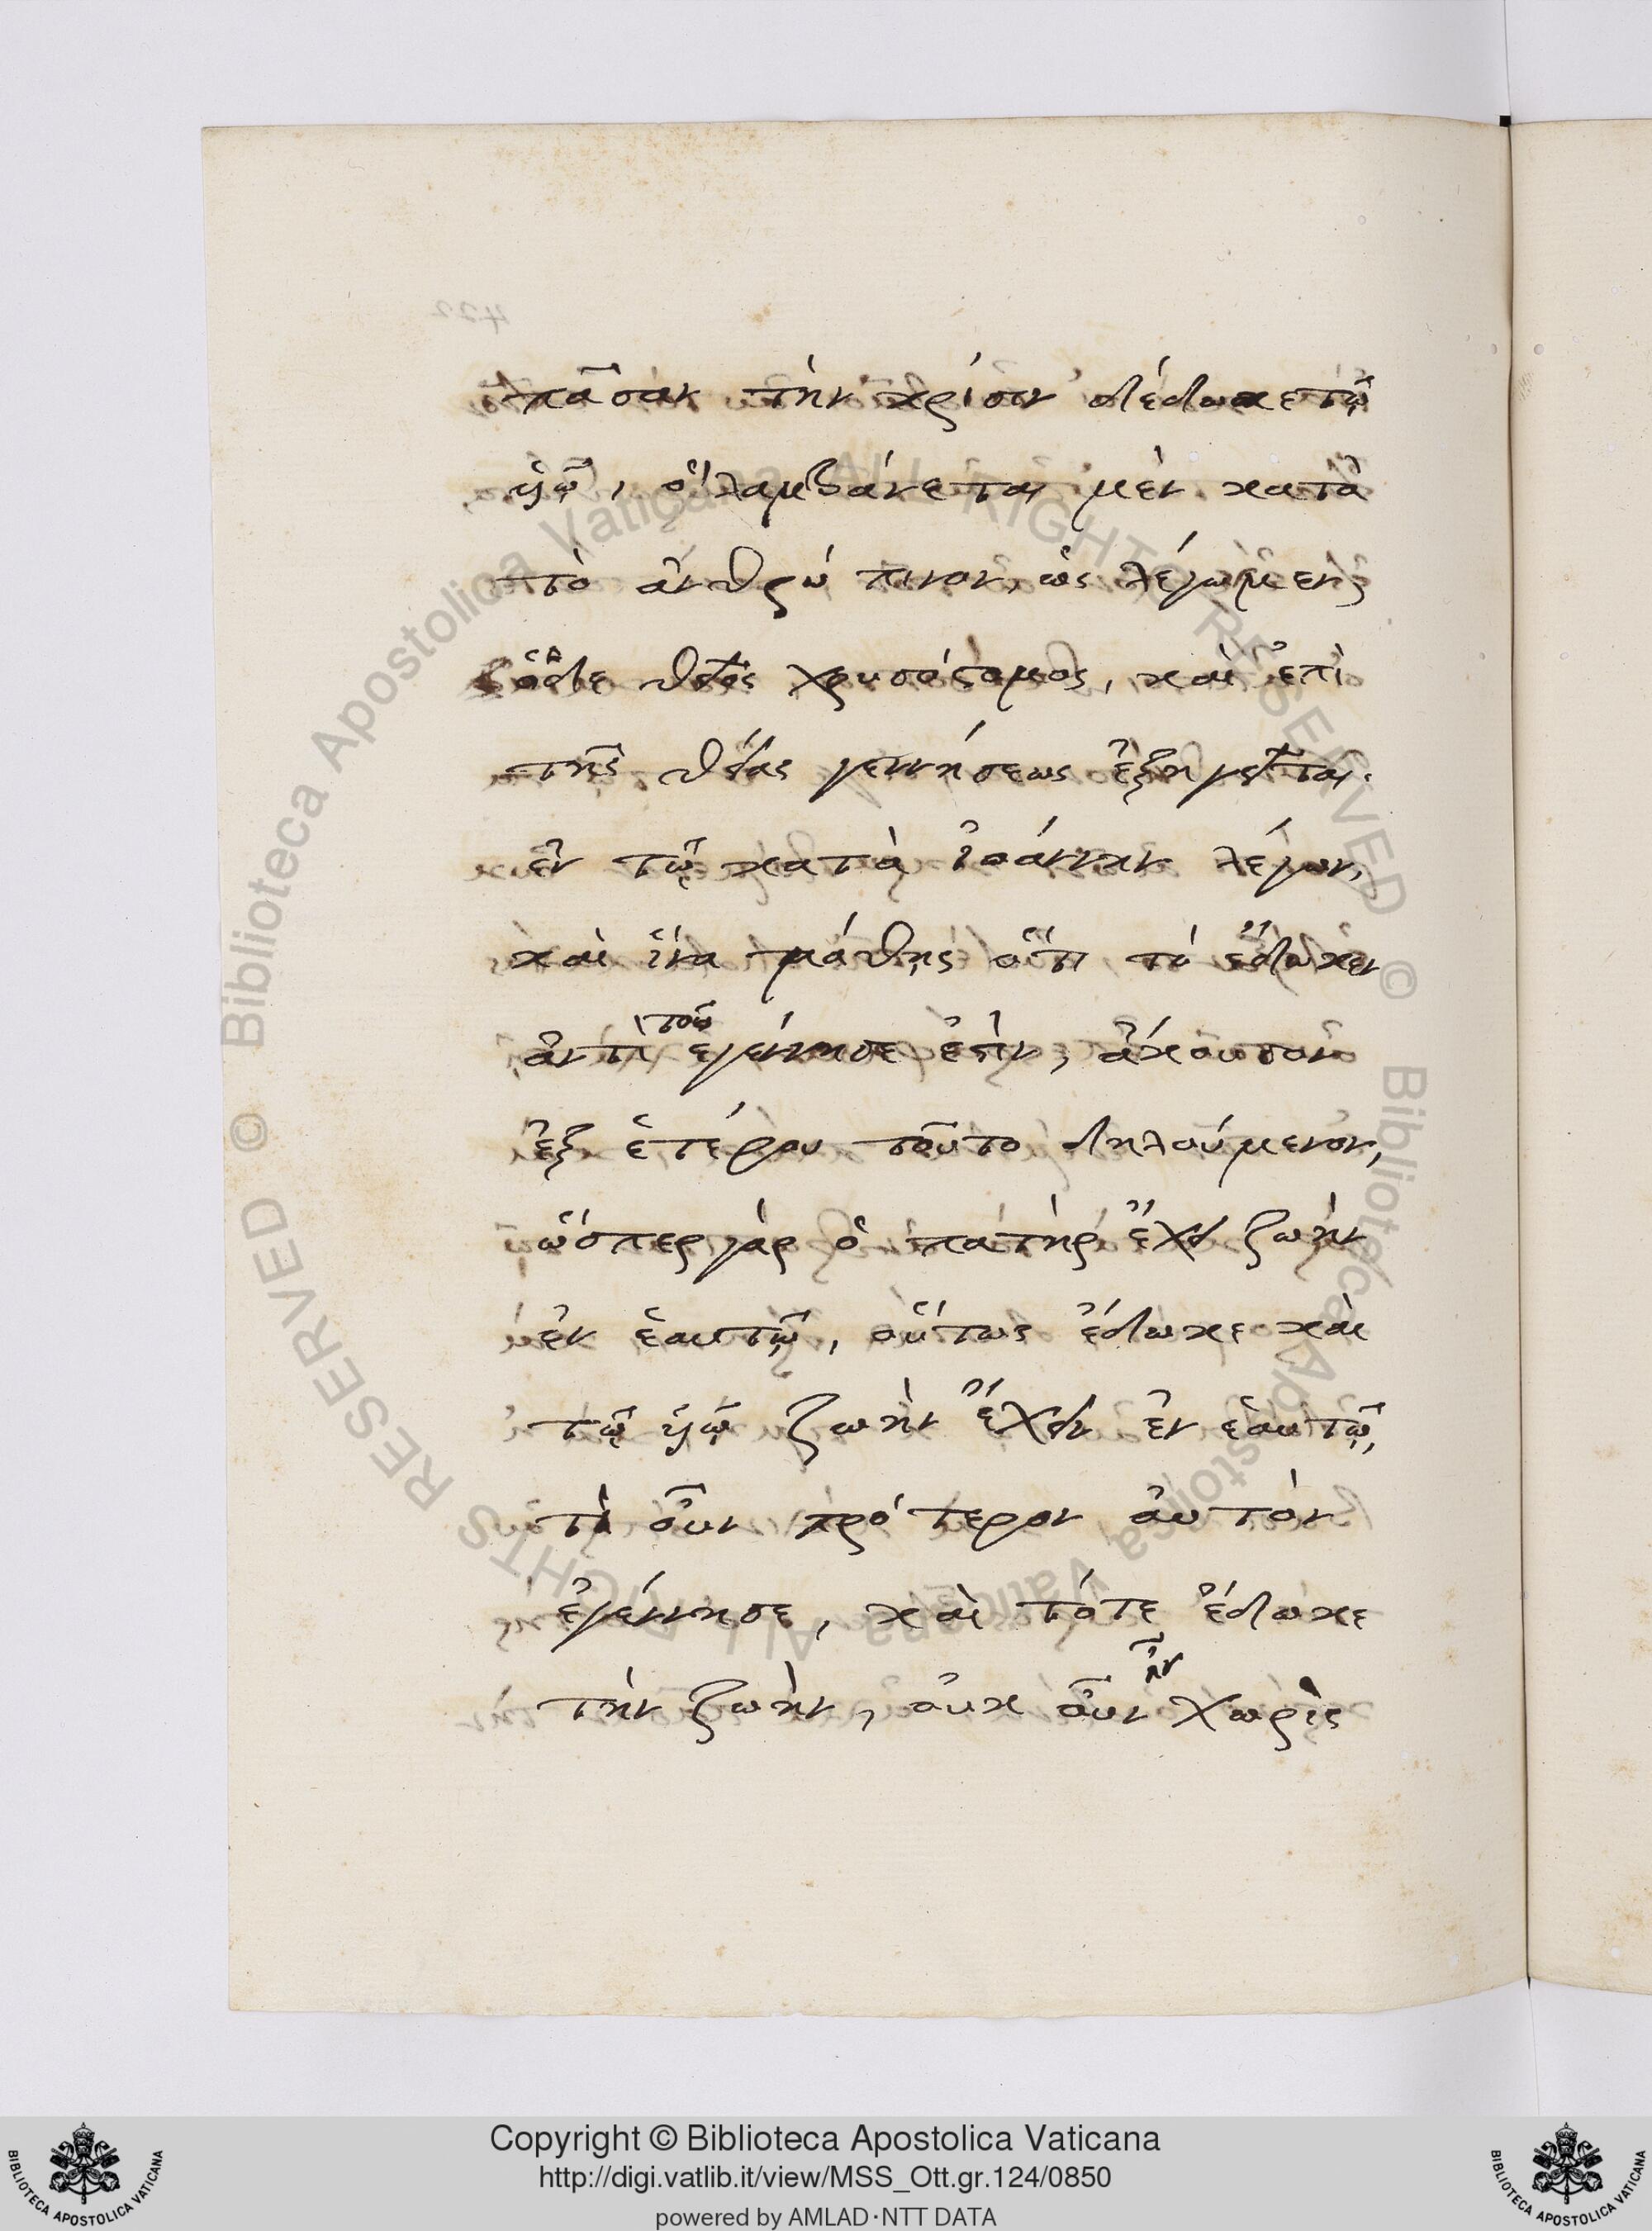 πᾶσαν τὴν κρίσιν δέδωκε τῷ
υἱῷ, ὃ λαμβάνεται μὲν κατὰ
τὸ ἀνθρώπινον, ὡς λέγωμεν,
ὁ δὲ θεῖος χρυσόστομος, καὶ ἐπὶ
τῆς θείας γεννήσεως ἐξηγεῖται.
ἐν τῷ κατὰ ἰωάννην λέγων,
καὶ ἵνα μάθῃς ὅτι τὸ ἔδωκεν
ἀντὶ τοῦ ἐγέννησε ἐστὶν, ἄκουσον
ἐξ ἑτέρου τοῦτο δηλούμενον,
ὥσπερ γὰρ ὁ πατὴρ ἔχει ζωὴν
ἐν ἑαυτῷ, οὕτως ἔδωκε καὶ
τῷ υἱῷ ζωὴν ἔχειν ἐν ἑαυτῷ,
τὶ οὖν πρότερον αὐτὸν
ἐγέννησε, καὶ τότε ἔδωκε
τὴν ζωὴν, οὐκ οὖν ἦν χωρὶς
Copyright © Biblioteca Apostolica Vaticana
http://digi.vatlib.it/view/MSS_Ott.gr.124/0850
powered by AMLAD·NTT DATA
BIBLIOTECA APOSTOLICA VATICANA
BIBLIOTECA APOSTOLICA VATICANA
© Biblioteca Apostolica Vaticana ALL RIGHTS RESERVED © Biblioteca Apostolica Vaticana ALL RIGHTS RESERVED